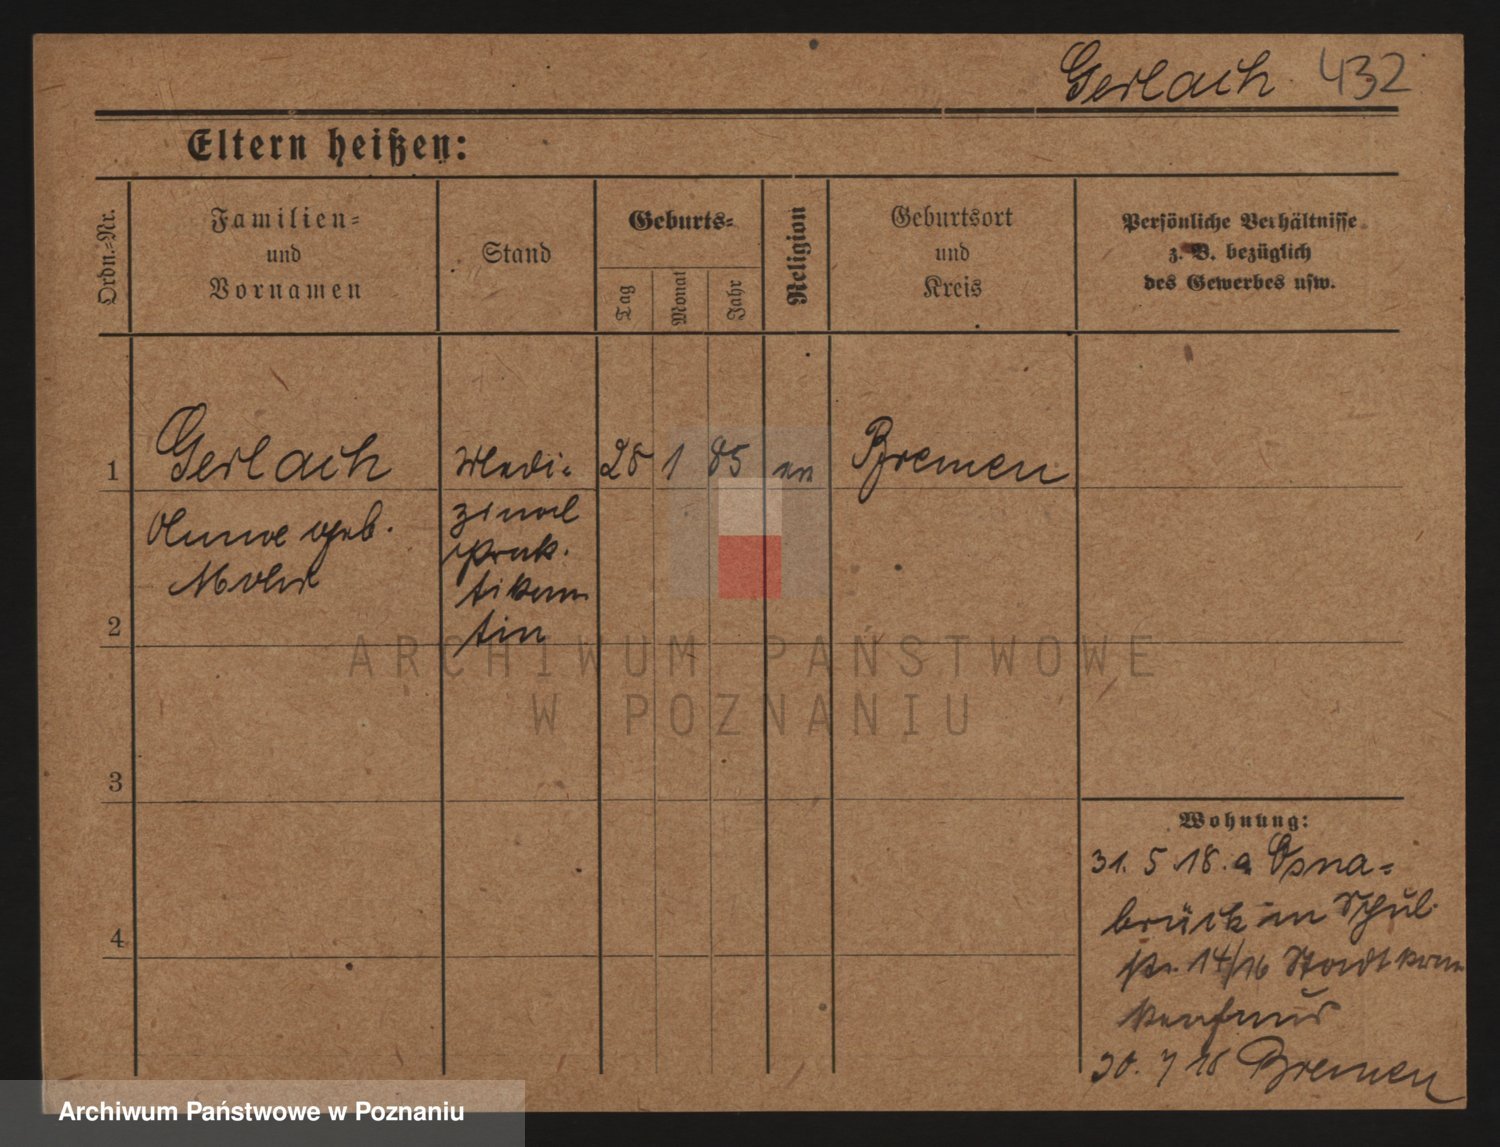 Gerlach 432
Eltern heißen:
Ordn.-Nr.
Familien-
und
Vornamen
Stand
Geburts-
Tag
Monat
Jahr
Religion
Geburtsort
und
Kreis
Persönliche Verhältnisse
z. B. bezüglich
des Gewerbes usw.
1
Gerlach
Medi-
28
1
85
ev
Bremen
geb.
zinal
prak.
tikan
tin
2
3
4
Wohnung:
31. 5. 18. a Osna-
brück in Schul
str. 14/16 Stadtkran
kenhaus
30. 7 18 Bremen
ARCHIWUM PAŃSTWOWE
W POZNANIU
Archiwum Państwowe w Poznaniu